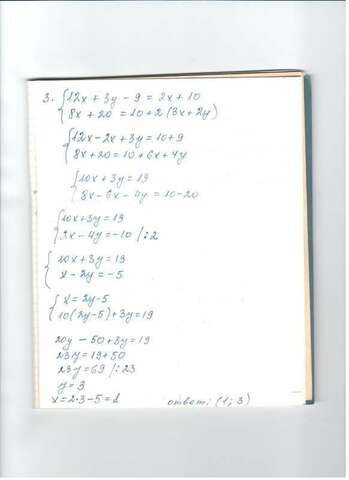 3. { 12x + 3y - 9 = 2x + 10
8x + 20 = 10 + 2 (3x + 2y)
{ 12x - 2x + 3y = 10 + 9
8x + 20 = 10 + 6x + 4y
{ 10x + 3y = 19
8x - 6x - 4y = 10 - 20
{ 10x + 3y = 19
2x - 4y = -10 /:2
{ 10x + 3y = 19
x - 2y = -5
{ x = 2y - 5
10(2y - 5) + 3y = 19
20y - 50 + 3y = 19
23y = 19 + 50
23y = 69 /:23
y = 3
x = 2·3 - 5 = 1 ответ: (1; 3)